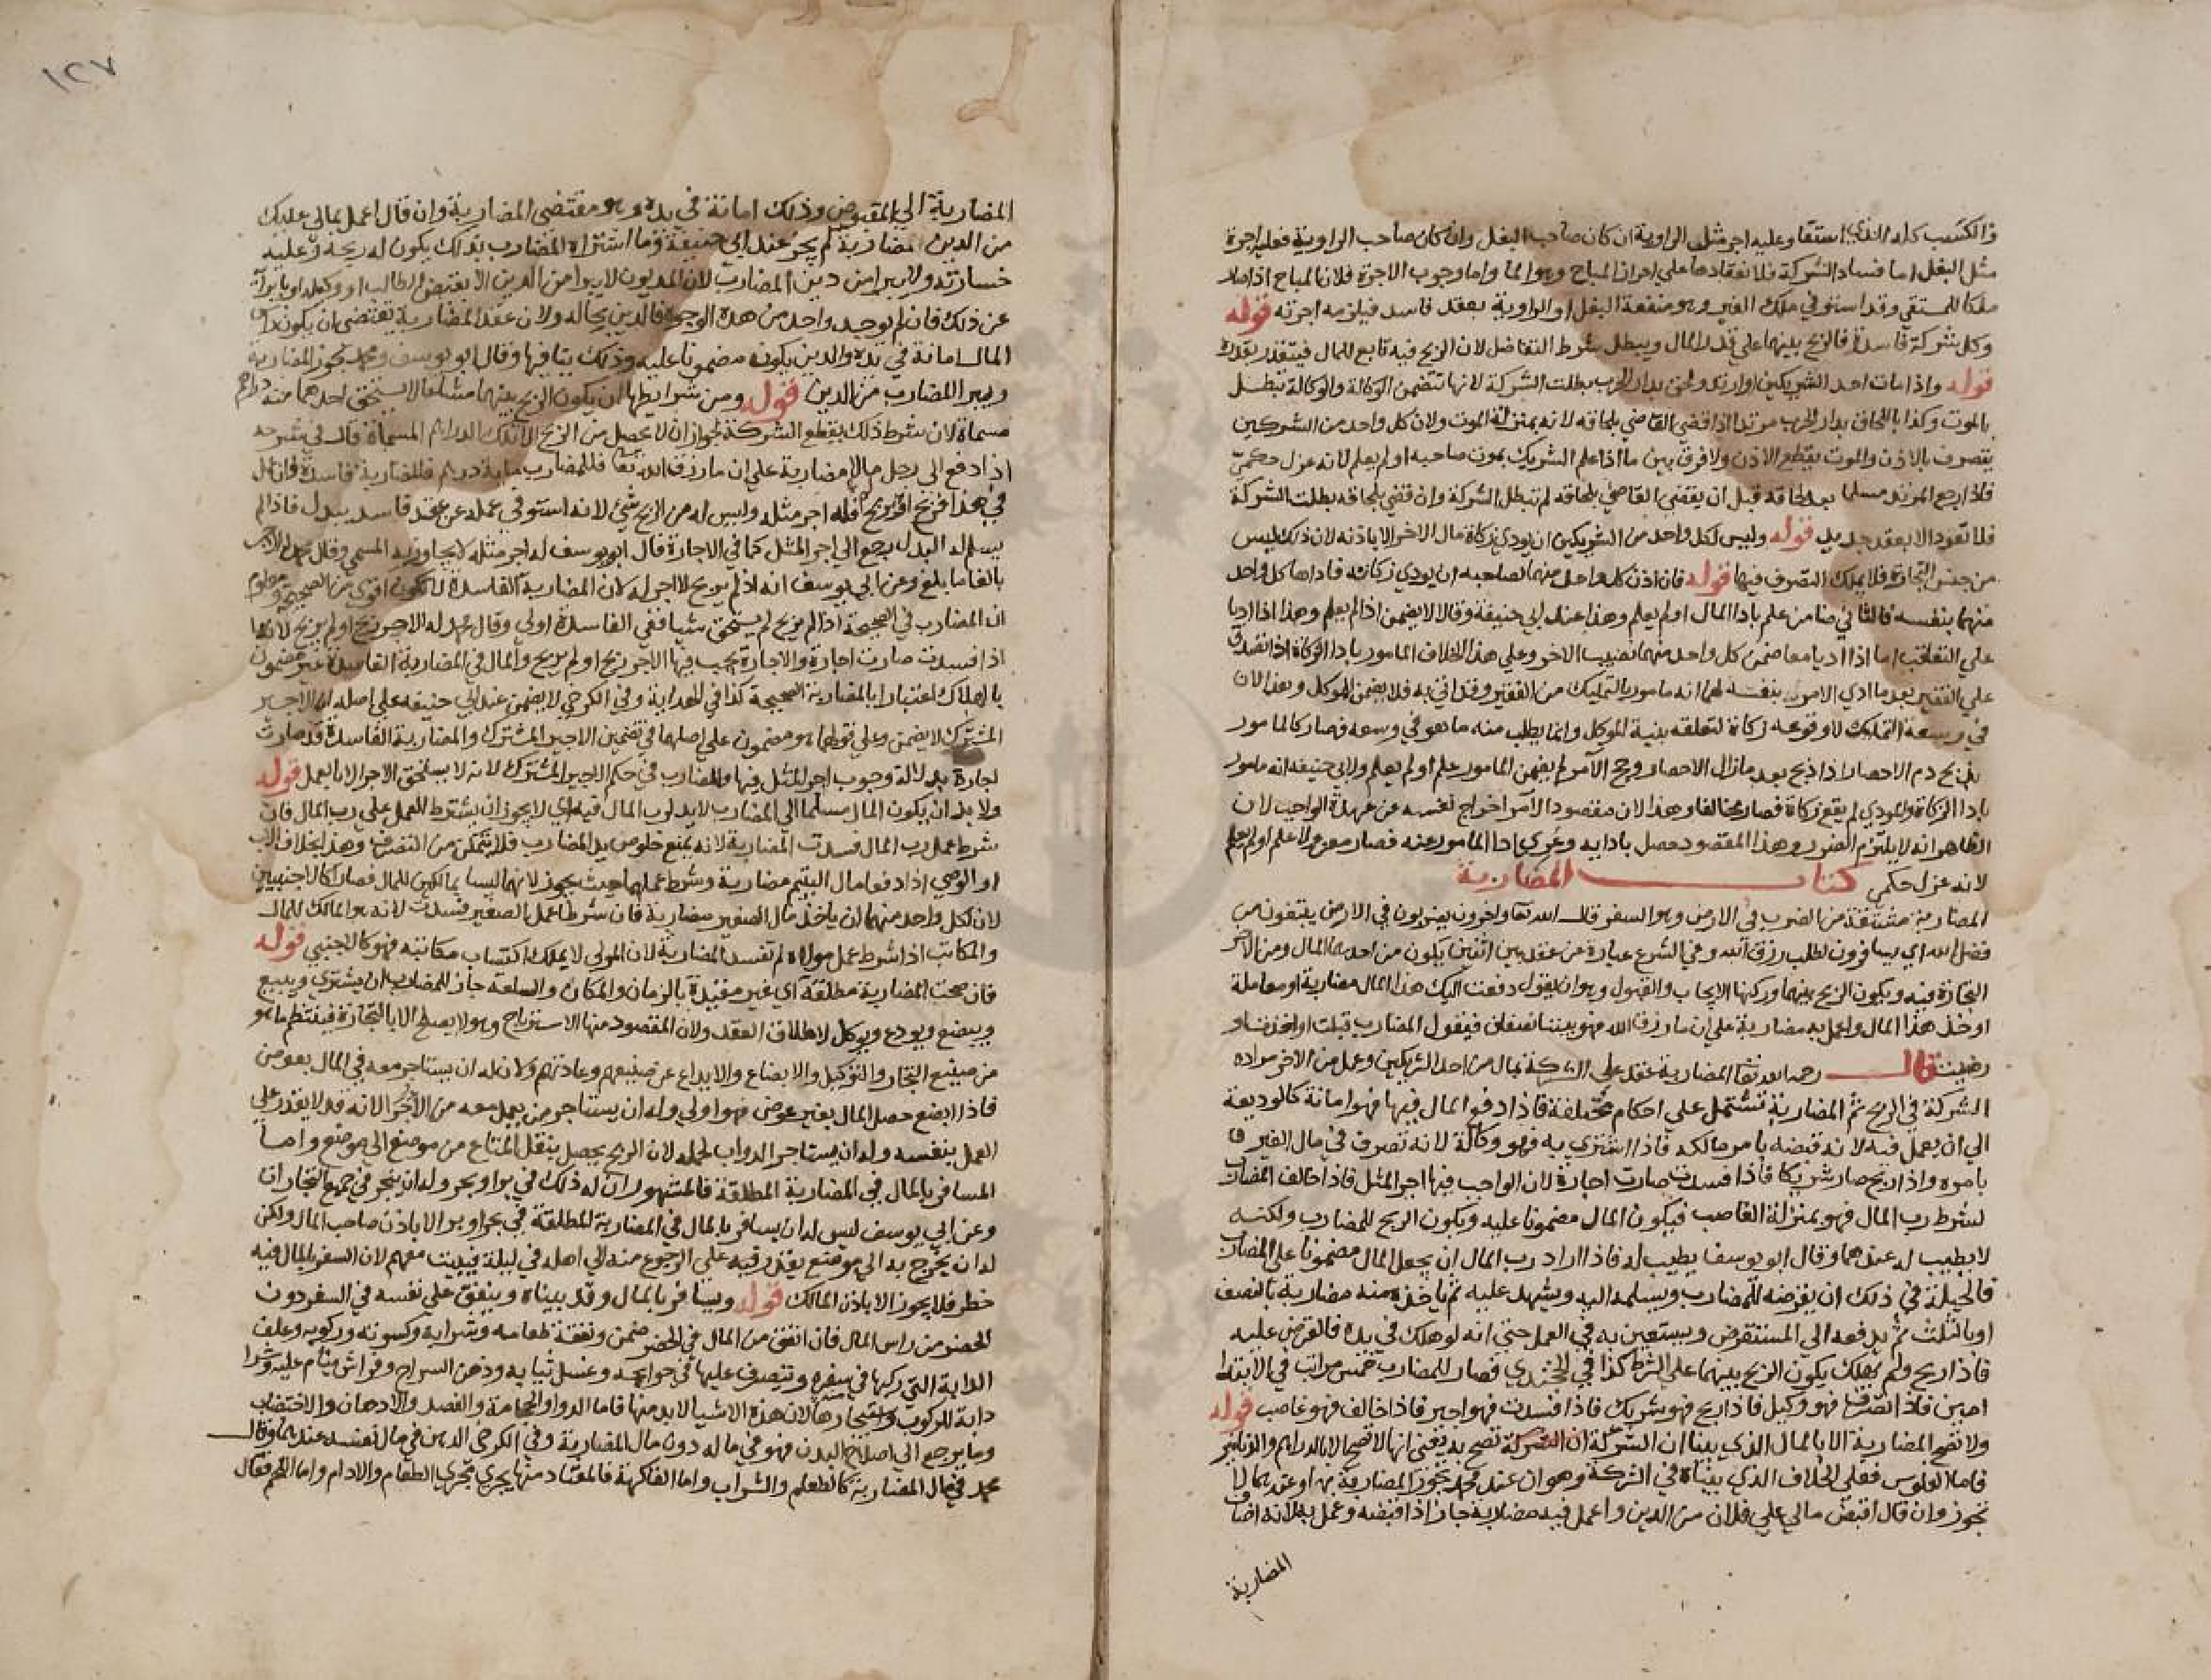 والكسب كله للذي استقا وعليه اجر مثل الراوية ان كان صاحب البغل وان كان صاحب الراوية فعليه اجرة
مثل البغل اما فساد الشركة فلانعقادها علي احراز المباح وهو الما واما وجوب الاجرة فلان المباح اذا صار
ملكا للمستقي وقد استوفي ملك الغير وهو منفعة البغل او الراوية بعقد فاسد فيلزمه اجرته قوله
وكل شركة فاسدة فالربح بينهما علي قدر المال ويبطل شرط التفاضل لان الربح فيه تابع للمال فيتقدر بقدره
قوله واذا مات احد الشريكين او ارتد ولحق بدار الحرب بطلت الشركة لانها تتضمن الوكالة والوكالة تبطل
بالموت وكذا بالتحاق بدار الحرب مرتدا اذا قضي القاضي بلحاقه لانه بمنزلة الموت ولان كل واحد من الشريكين
يتصرف بالاذن والموت يقطع الاذن ولا فرق بين ما اذا علم الشريك بموت صاحبه او لم يعلم لانه عزل حكمي
فاذا رجع المرتد مسلما بعد لحاقه قبل ان يقضي القاضي بلحاقه لم تبطل الشركة وان قضي بلحاقه بطلت الشركة
فلا تعود الا بعقد جديد قوله وليس لكل واحد من الشريكين ان يودي زكاة مال الاخر الا باذنه لان ذلك ليس
من جنس التجارة فلا يملك التصرف فيها قوله فان اذن كل واحد منهما لصاحبه ان يودي زكاته فاداها كل واحد
منهما بنفسه فالثاني ضامن علم بادا المال او لم يعلم وهذا عند ابي حنيفة وقالا لا يضمن اذا لم يعلم وهذا اذا اديا
علي التعاقب اما اذا اديا معا ضمن كل واحد منهما نصيب الاخر وعلي هذا الخلاف المامور بادا الزكاة اذا تصدق
علي الفقير بعد ما ادي الامر بنفسه لهما انه مامور بالتمليك من الفقير وقد اتي به فلا يضمن للموكل وهذا لان
في وسعه التمليك لا وقوعه زكاة لتعلقه بنية الموكل وانما يطلب منه ما هو في وسعه فصار كالمامور
بذبح دم الاحصار اذا ذبح بعد ما زال الاحصار وحج الآمر لم يضمن المامور علم او لم يعلم ولابي حنيفة انه مامور
بادا الزكاة والمودي لم يقع زكاة فصار مخالفا وهذا لان مقصود الآمر اخراج نفسه عن عهدة الواجب لان
الظاهر انه لا يلتزم الضرر وهذا المقصود حصل بادايه وعري ادا المامور عنه فصار معزولا علم او لم يعلم
لانه عزل حكمي كتاب المضاربة
المضاربة مشتقة من الضرب في الارض وهو السفر قال الله تعا واخرون يضربون في الارض يبتغون من
فضل الله اي يسافرون لطلب رزق الله وفي الشرع عبارة عن عقد بين اثنين يكون من احدهما المال ومن الاخر
التجارة فيه ويكون الربح بينهما وركنها الايجاب والقبول وهو ان يقول دفعت اليك هذا المال مضاربة او معاملة
او خذ هذا المال واعمل به مضاربة علي ان ما رزق الله فهو بيننا نصفان فيقول المضارب قبلت او اخذت او
رضيت قال رحمه الله تعا المضاربة عقد علي الشركة بمال من احد الشريكين وعمل من الاخر مراده
الشركة في الربح ثم المضاربة تشتمل علي احكام مختلفة فاذا دفع المال فيها فهو امانة كالوديعة
الي ان يعمل فيه لانه قبضه بامر مالكه فاذا اشتري به فهو وكالة لانه تصرف في مال الغير
بامره واذا ربح صار شريكا فاذا فسدت صارت اجارة لان الواجب فيها اجر المثل فاذا خالف المضارب
لشرط رب المال فهو بمنزلة الغاصب فيكون المال مضمونا عليه ويكون الربح للمضارب ولكنه
لا يطيب له عندهما وقال ابو يوسف يطيب له فاذا اراد رب المال ان يجعل المال مضمونا علي المضارب
فالحيلة في ذلك ان يقرضه للمضارب ويسلمه اليه ويشهد عليه ثم ياخذه منه مضاربة بالنصف
او بالثلث ثم يدفعه الي المستقرض ويستعين به في العمل حتي انه لو هلك في يده فالقرض عليه
فاذا ربح ولم يهلك يكون الربح بينهما علي الشرط كذا في الخجندي فصار للمضارب خمس مراتب في الابتدا
امين فاذا تصرف فهو وكيل فاذا ربح فهو شريك فاذا فسدت فهو اجير فاذا خالف فهو غاصب قوله
ولا تصح المضاربة الا بالمال الذي بينا ان الشركة تصح به يعني انها لا تصح الا بالدراهم والدنانير
فاما الفلوس فعلي الخلاف الذي بيناه في الشركة وهو ان عند محمد تجوز المضاربة بها وعندهما لا
تجوز وان قال اقبض مالي علي فلان من الدين واعمل فيه مضاربة جاز اذا قبضه وعمل به لانه اضاف
المضاربة
١٢٧
المضاربة الي المقبوض وذلك امانة في يده وهو مقتضي المضاربة وان قال اعمل بمالي عليك
من الدين مضاربة لم يجز عند ابي حنيفة وما اشتراه المضارب بذلك يكون له ربحه وعليه
خسارته ولا يبرا من دين المضارب لان المديون لا يبرا من الدين الا بقبض الطالب او وكيله او بابرآئه
عن ذلك فان لم يوجد واحد من هذه الوجوه فالدين بحاله ولان عقد المضاربة يقتضي ان يكون راس
المال امانة في يده والدين يكون مضمونا عليه وذلك ينافيها وقال ابو يوسف ومحمد تجوز المضاربة
ويبرا المضارب من الدين قوله ومن شرايطها ان يكون الربح بينهما مشاعا لا يستحق احدهما منه دراهم
مسماة لان شرط ذلك يقطع الشركة لجواز ان لا يحصل من الربح الا تلك الدراهم المسماة قال في شرحه
اذا دفع الي رجل مالا مضاربة علي ان ما رزق الله تعا فللمضارب ماية درهم فالمضاربة فاسدة فان عمل
في هذا فربح او لم يربح فله اجر مثله وليس له من الربح شي لانه استوفي عمله عن عقد فاسد ببدل فاذا لم
يسلم له البدل رجع الي اجر المثل كما في الاجارة قال ابو يوسف له اجر مثله لا يجاوز به المسمي وقال محمد له الاجر
بالغا ما بلغ وعن ابي يوسف انه اذا لم يربح لا اجر له لان المضاربة الفاسدة لا تكون اقوي من الصحيحة ومعلوم
ان المضارب في الصحيحة اذا لم يربح لم يستحق شيا ففي الفاسدة اولي وقال محمد له الاجر ربح او لم يربح لانها
اذا فسدت صارت اجارة والاجارة يجب فيها الاجر ربح او لم يربح والمال في المضاربة الفاسدة غير مضمون
بالهلاك اعتبارا بالمضاربة الصحيحة كذا في الهداية وفي الكرخي لا يضمن عند ابي حنيفة علي اصله ان الاجير
المشترك لا يضمن وعلي قولهما هو مضمون علي اصلهما في تضمين الاجير المشترك والمضاربة الفاسدة قد صارت
اجارة بدلالة وجوب اجر المثل فيها والمضارب في حكم الاجير المشترك لانه لا يستحق الاجر الا بالعمل قوله
ولا بد ان يكون المال مسلما الي المضارب لا يد لرب المال فيه اي لا يجوز ان يشترط العمل علي رب المال فان
شرط عمل رب المال فسدت المضاربة لانه يمنع خلوص يد المضارب فلا يتمكن من التصرف وهذا بخلاف الاب
او الوصي اذا دفعا مال اليتيم مضاربة وشرط عملهما حيث يجوز لانهما ليسا بمالكين للمال فصارا كالاجنبيين
لان لكل واحد منهما ان ياخذ مال الصغير مضاربة فان شرطا عمل الصغير فسدت لانه هو المالك للمال
والمكاتب اذا شرط عمل مولاه لم تفسد المضاربة لان المولي لا يملك اكتساب مكاتبه فهو كالاجنبي قوله
فان صحت المضاربة مطلقة اي غير مقيدة بالزمان والمكان والسلعة جاز للمضارب ان يشتري ويبيع
ويبضع ويودع ويوكل لاطلاق العقد ولان المقصود منها الاسترباح وهو لا يصلح الا بالتجارة فينتظم ما هو
من صنيع التجار والتوكيل والابضاع والايداع من صنيعهم وعادتهم ولان له ان يستاجر معه في المال بعوض
فاذا ابضع حصل المال بغير عوض فهو اولي وله ان يستاجر من يعمل معه من الاجرا لانه قد لا يقدر علي
العمل بنفسه وله ان يستاجر الدواب لحمله لان الربح يحصل بنقل المتاع من موضع الي موضع واما
المسافر بالمال في المضاربة المطلقة فالمشهور ان له ذلك في بر او بحر وله ان يتجر في جميع التجارات
وعن ابي يوسف ليس له ان يسافر بالمال في المضاربة المطلقة في بحر او بر الا باذن صاحب المال ولكن
له ان يخرج به الي موضع يقدر فيه علي الرجوع منه الي اهله في ليلة فيبيت معهم لان السفر بالمال فيه
خطر فلا يجوز الا باذن المالك قوله ويسافر بالمال وقد بيناه وينفق علي نفسه في السفر دون
الحضر من راس المال فان انفق من المال في الحضر ضمن ونفقة طعامه وشرابه وكسوته وركوبه وعلف
الدابة التي ركبها في سفره وتتصرف عليها في حوايجه وغسل ثيابه ودهن السراج وفراش ينام عليه وشرا
دابة للركوب واستيجارها لان هذه الاشيا لا بد منها فاما الدوا والحجامة والفصد والادهان والاختضاب
وما يرجع الي اصلاح البدن فهو في ماله دون مال المضاربة وفي الكرخي الدهن في مال نفسه عندهما وقال
محمد في مال المضاربة كالطعام والشراب واما الفاكهة فالمعتاد منها يجري مجري الطعام والادام واما اللحم فقال